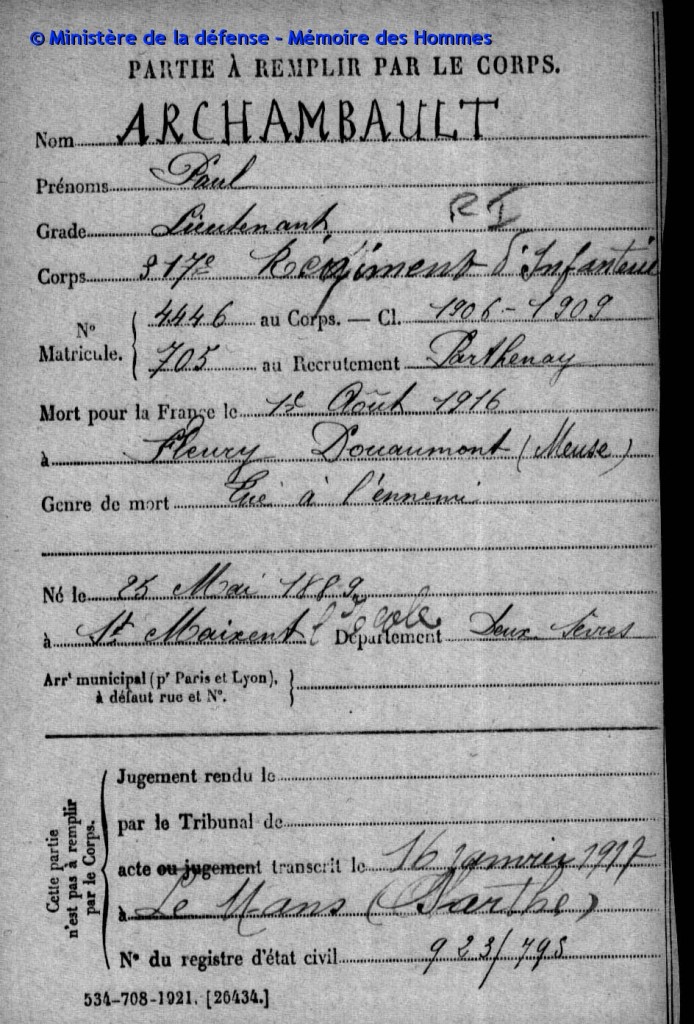 © Ministère de la défense - Mémoire des Hommes
PARTIE À REMPLIR PAR LE CORPS.
Nom ARCHAMBAULT
Prénoms Paul
Grade Lieutenant RI
Corps 317e Régiment d'Infanterie
N° Matricule. 4446 au Corps. — Cl. 1906 - 1909
705 au Recrutement Parthenay
Mort pour la France le Août 1916
à Fleury Douaumont (Meuse)
Genre de mort Tué à l'ennemi
Né le 25 Mai 1889
à St Maixent l'Ecole Département Deux Sèvres
Arrt municipal (pr Paris et Lyon),
à défaut rue et N°.
Cette partie n'est pas à remplir par le Corps.
Jugement rendu le
par le Tribunal de
acte ou jugement transcrit le 16 janvier 1917
à Le Mans (Sarthe)
N° du registre d'état civil 923/795
534-708-1921. [26434.]